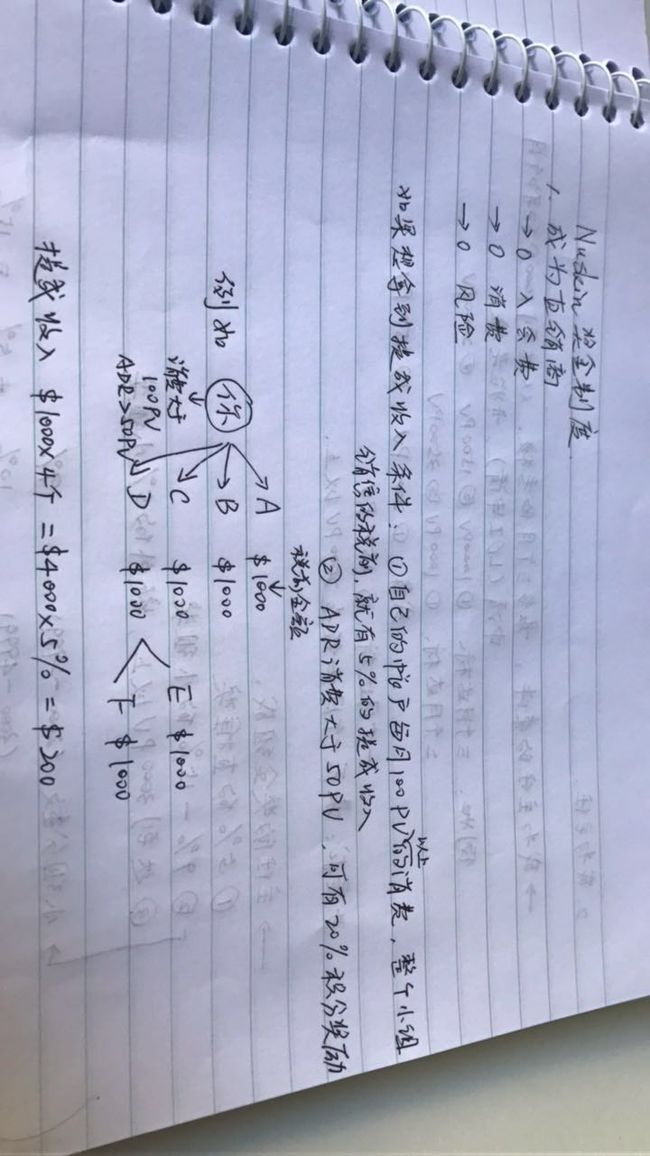 Nuskin 奖金制度
1. 成为直销商
→ 0 入会费
→ 0 消费
→ 0 风险
如果想拿到提成收入条件: ① 自己的帐户每月100PV以上的消费, 整个小组
销售的税前, 就有5%的提成收入
② ADR消费大于50PV, 可有20%积分奖励
税前金额
例如 你 A $1000
B $1000
消费大于 100PV
ADR>50PV
C $1000
D $1000
E $1000
F $1000
提成收入 $1000×4个 = $4000×5% = $200